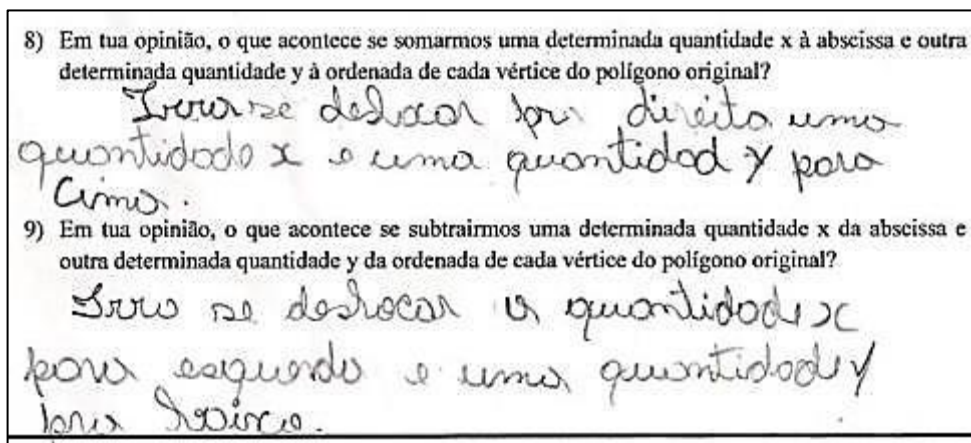 8) Em tua opinião, o que acontece se somarmos uma determinada quantidade x à abscissa e outra
determinada quantidade y à ordenada de cada vértice do polígono original?
Irra se deslocar pra direita uma
quantidade x e uma quantidad y para
cima.
9) Em tua opinião, o que acontece se subtrairmos uma determinada quantidade x da abscissa e
outra determinada quantidade y da ordenada de cada vértice do polígono original?
Irra se deslocar a quantidade x
para esquerda e uma quantidade y
pra baixo.